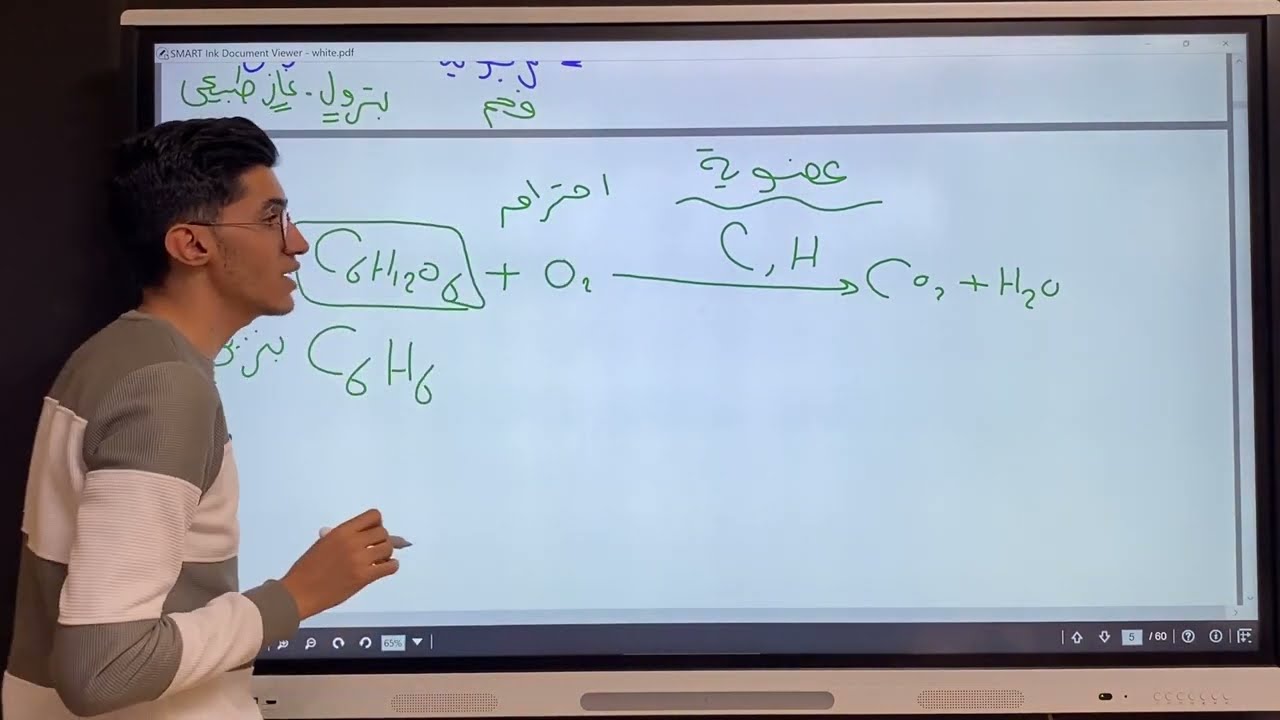 SMART Ink Document Viewer - white.pdf
بترول - غاز طبيعي
فحم
عضوية
احتراق
C, H
C6H12O6 + O2 → CO2 + H2O
C6H6
65%
5 / 60